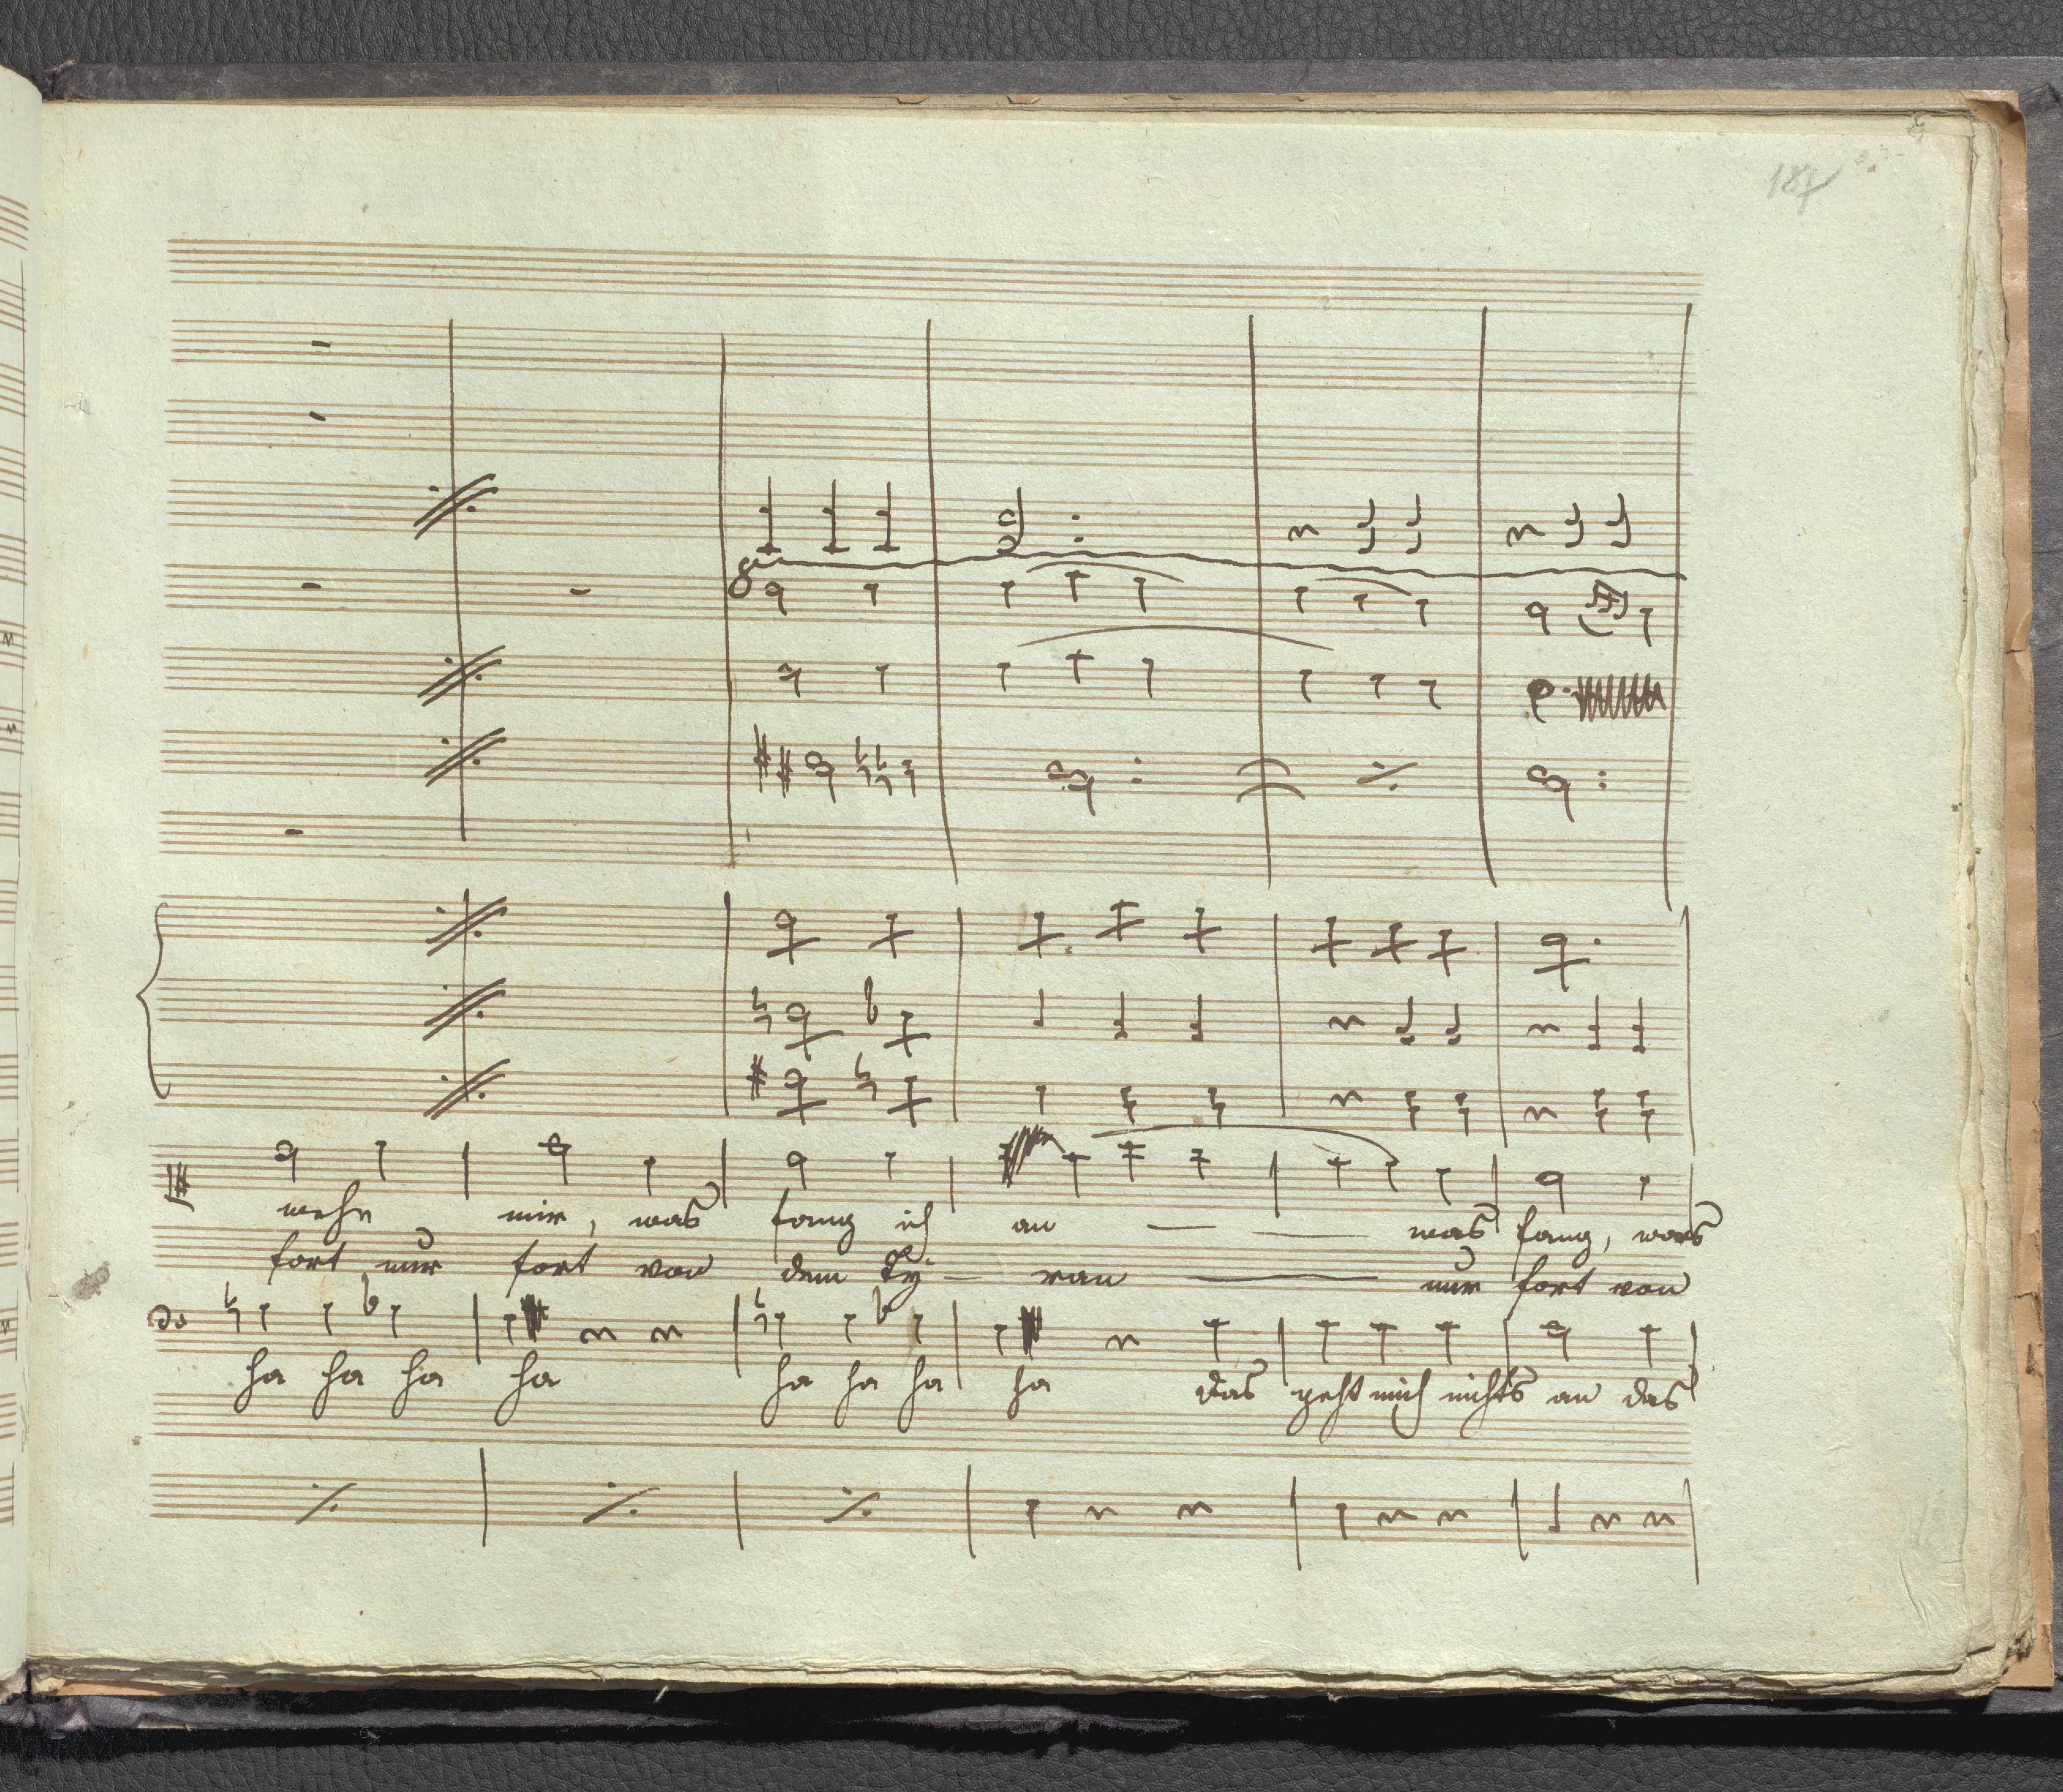 187
8
wehe mir, was fang ich an — — was fang, was
fort nur fort von dem Ty- ran — nur fort von
ha ha ha ha ha ha ha ha das geht mich nichts an das